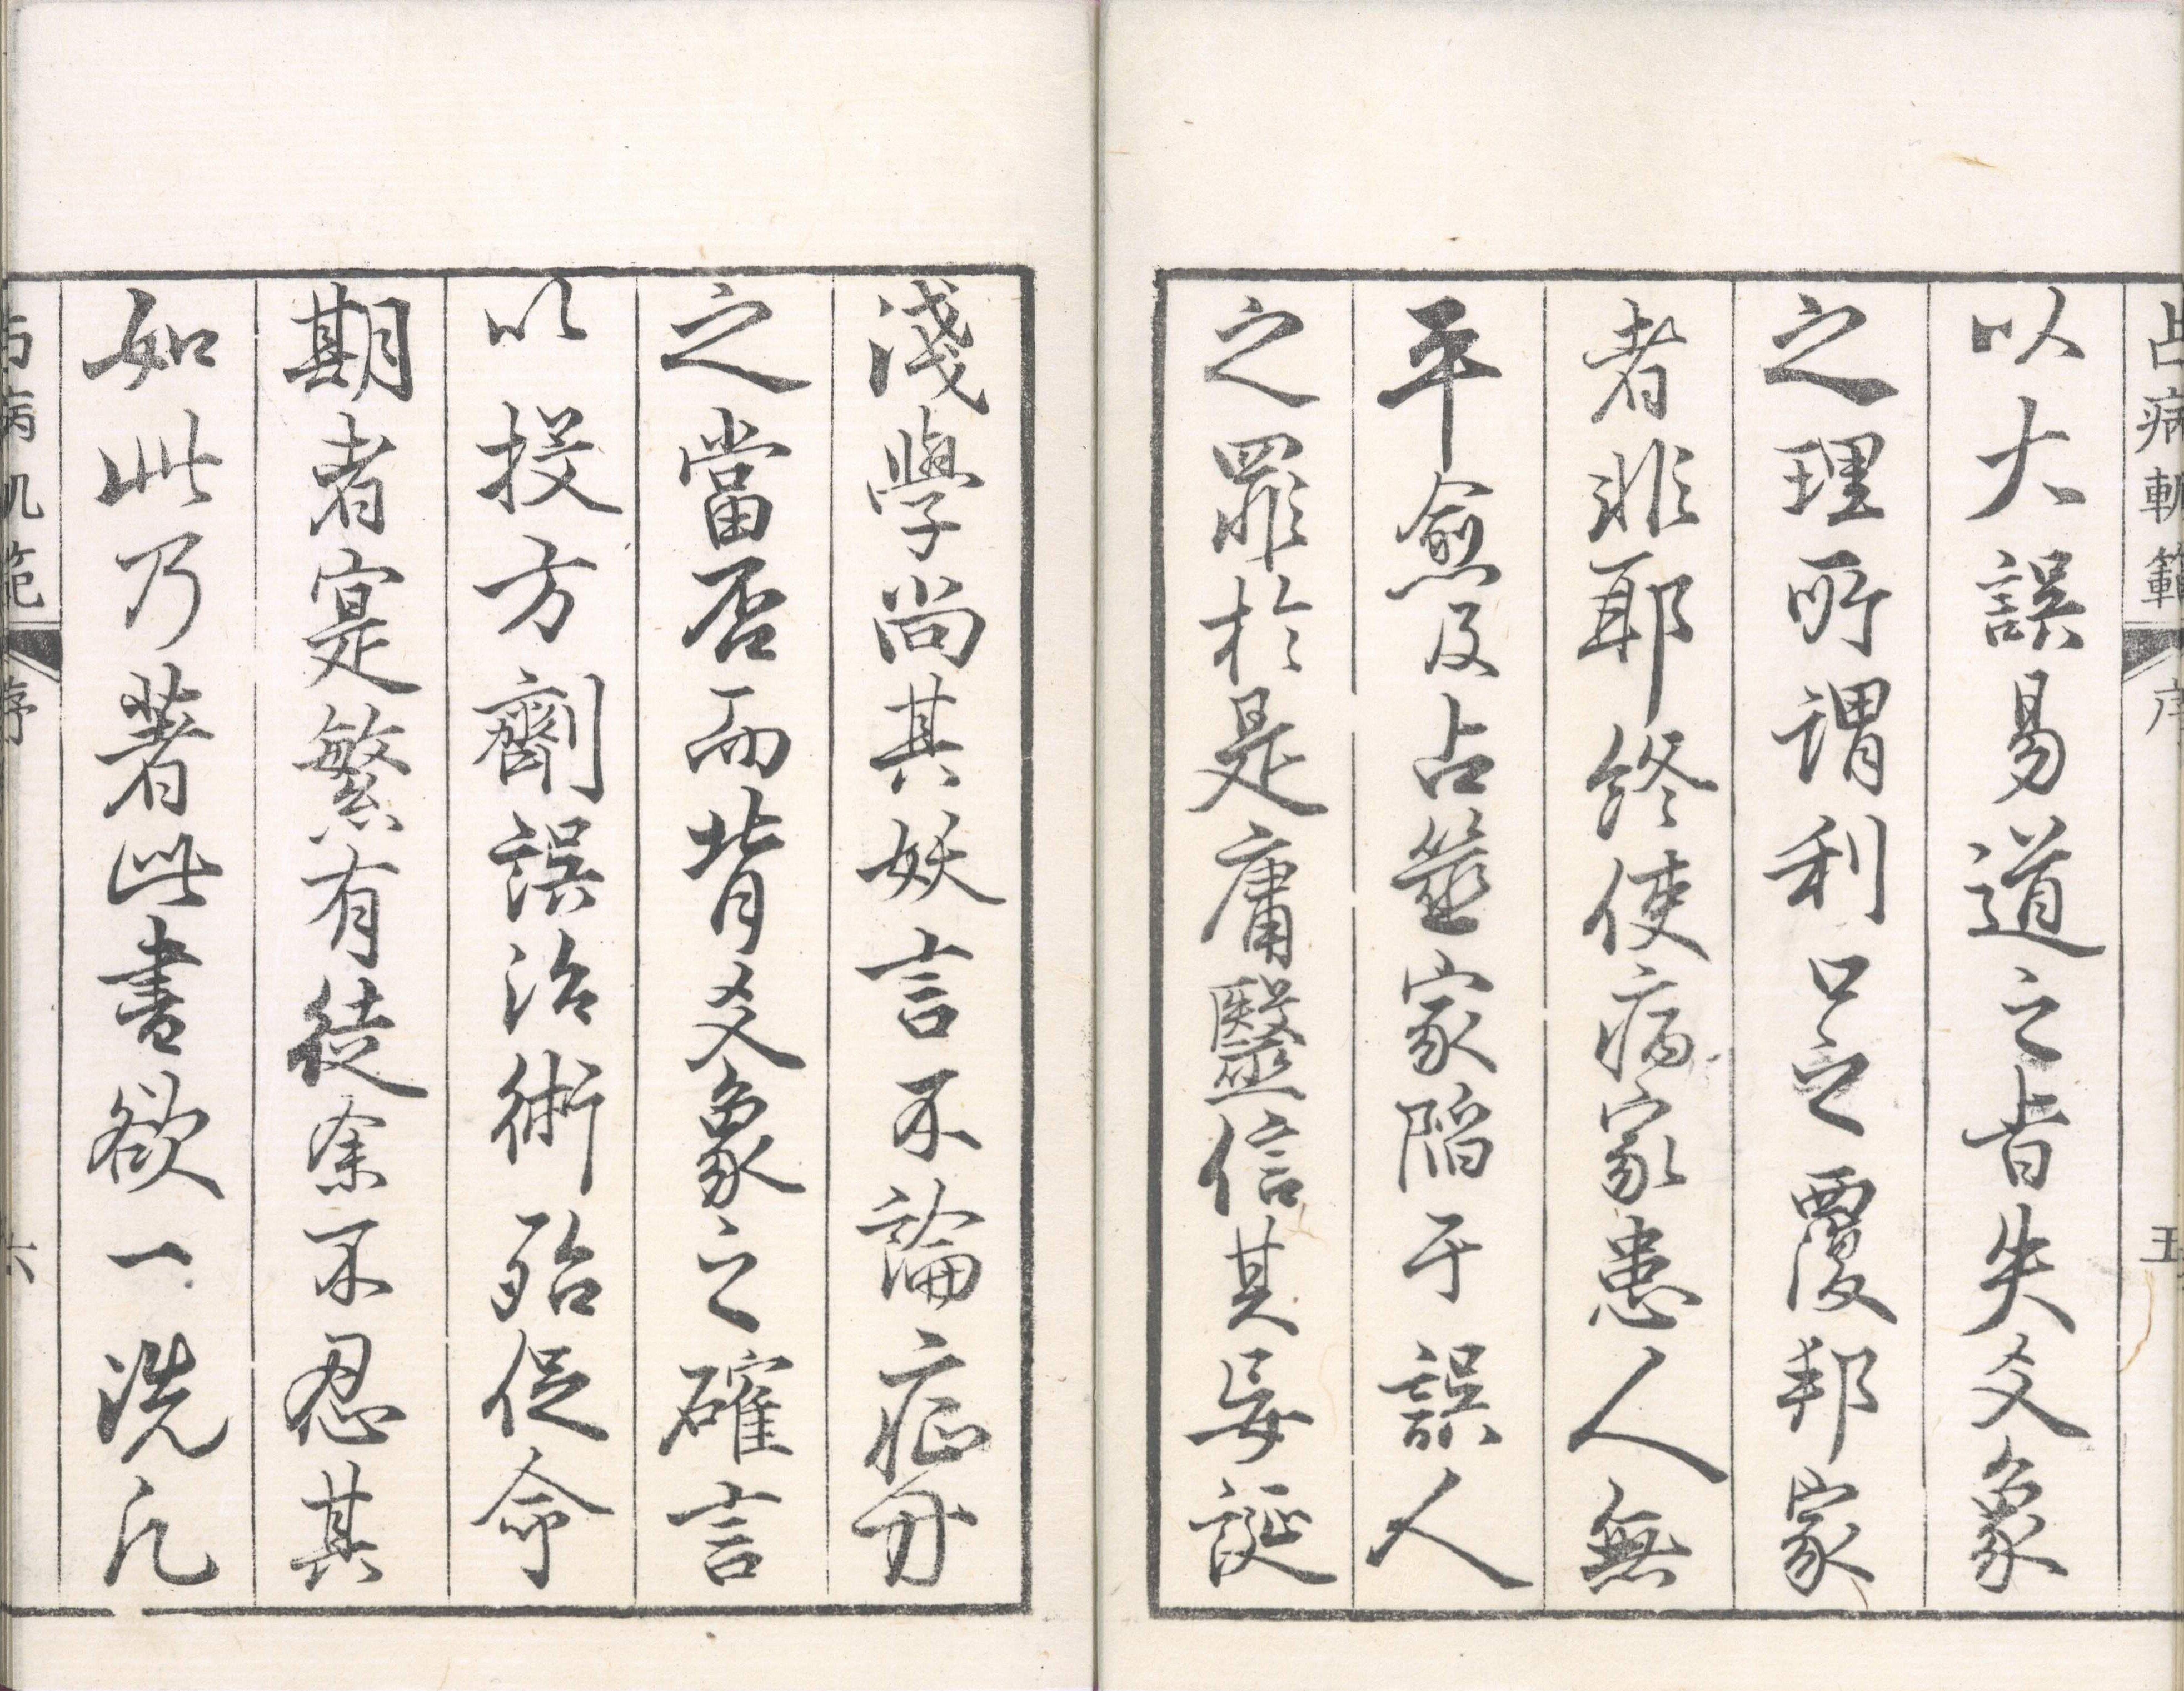 占病軌範 序 五
以大誤易道之旨失爻象
之理所謂利口之覆邦家
者非耶終使病家患人無
平愈及占筮家陷于誤人
之罪於是庸醫信其妄誕
淺學尚其妖言不論症毋
之當否而背爻象之確言
以投方劑誤治術殆促命
期者寔繁有徒余不忍其
如此乃著此書欲一洗凡
占病軌範 序 六